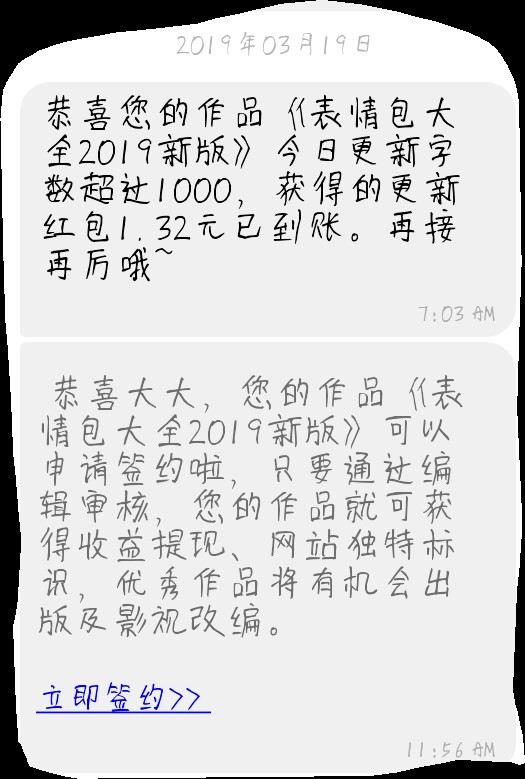 2019年03月19日
恭喜您的作品《表情包大
全2019新版》今日更新字
数超过1000，获得的更新
红包1.32元已到账。再接
再厉哦~
7:03 AM
恭喜大大，您的作品《表
情包大全2019新版》可以
申请签约啦，只要通过编
辑审核，您的作品就可获
得收益提现、网站独特标
识，优秀作品将有机会出
版及影视改编。
立即签约>>
11:56 AM